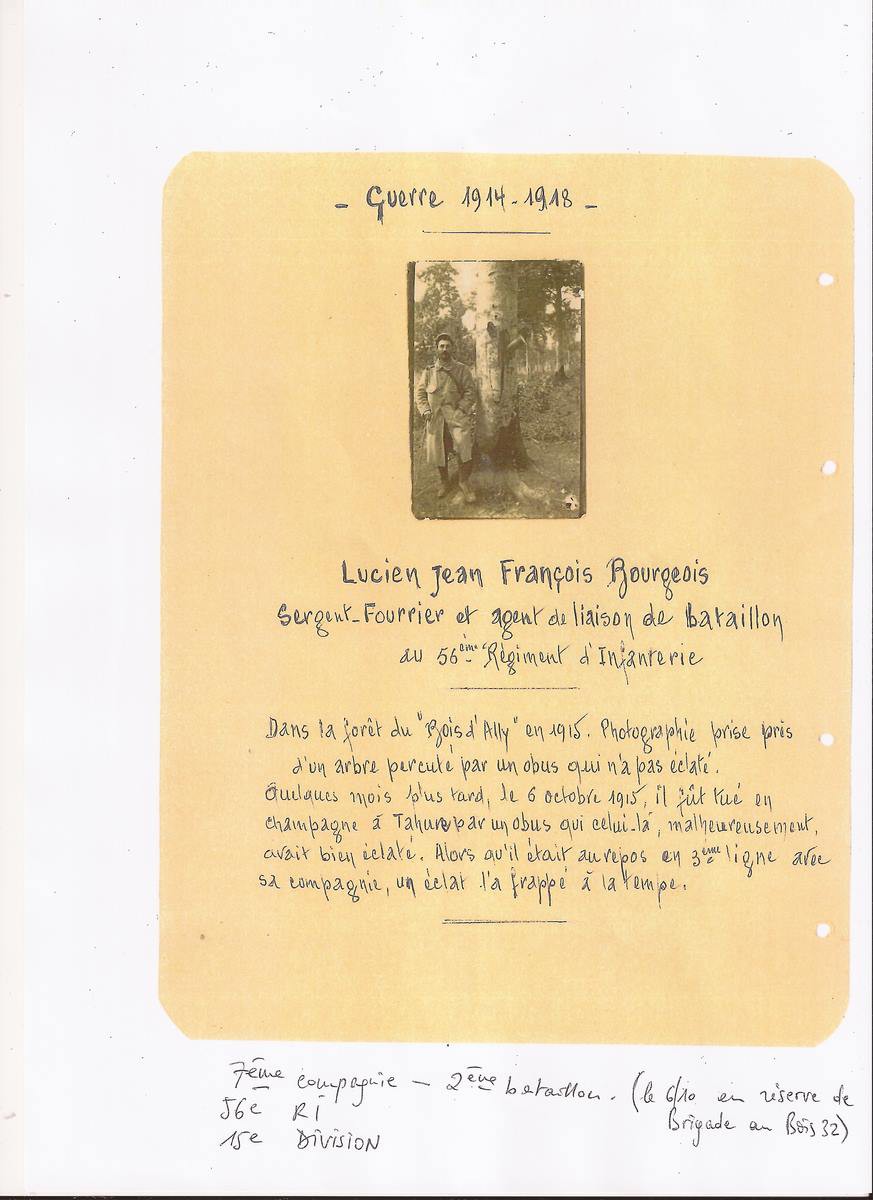 - Guerre 1914-1918 -
Lucien Jean François Bourgeois
Sergent-Fourrier et agent de liaison de bataillon
au 56ème Régiment d'Infanterie
Dans la forêt du "Bois d'Ally" en 1915. Photographie prise près
d'un arbre percuté par un obus qui n'a pas éclaté.
Quelques mois plus tard, le 6 octobre 1915, il fût tué en
champagne à Tahure par un obus qui celui-là, malheureusement,
avait bien éclaté. Alors qu'il était au repos en 3ème ligne avec
sa compagnie, un éclat l'a frappé à la tempe.
7ème compagnie - 2ème bataillon. (le 6/10 en réserve de
Brigade au Bois 32)
56e RI
15e DIVISION